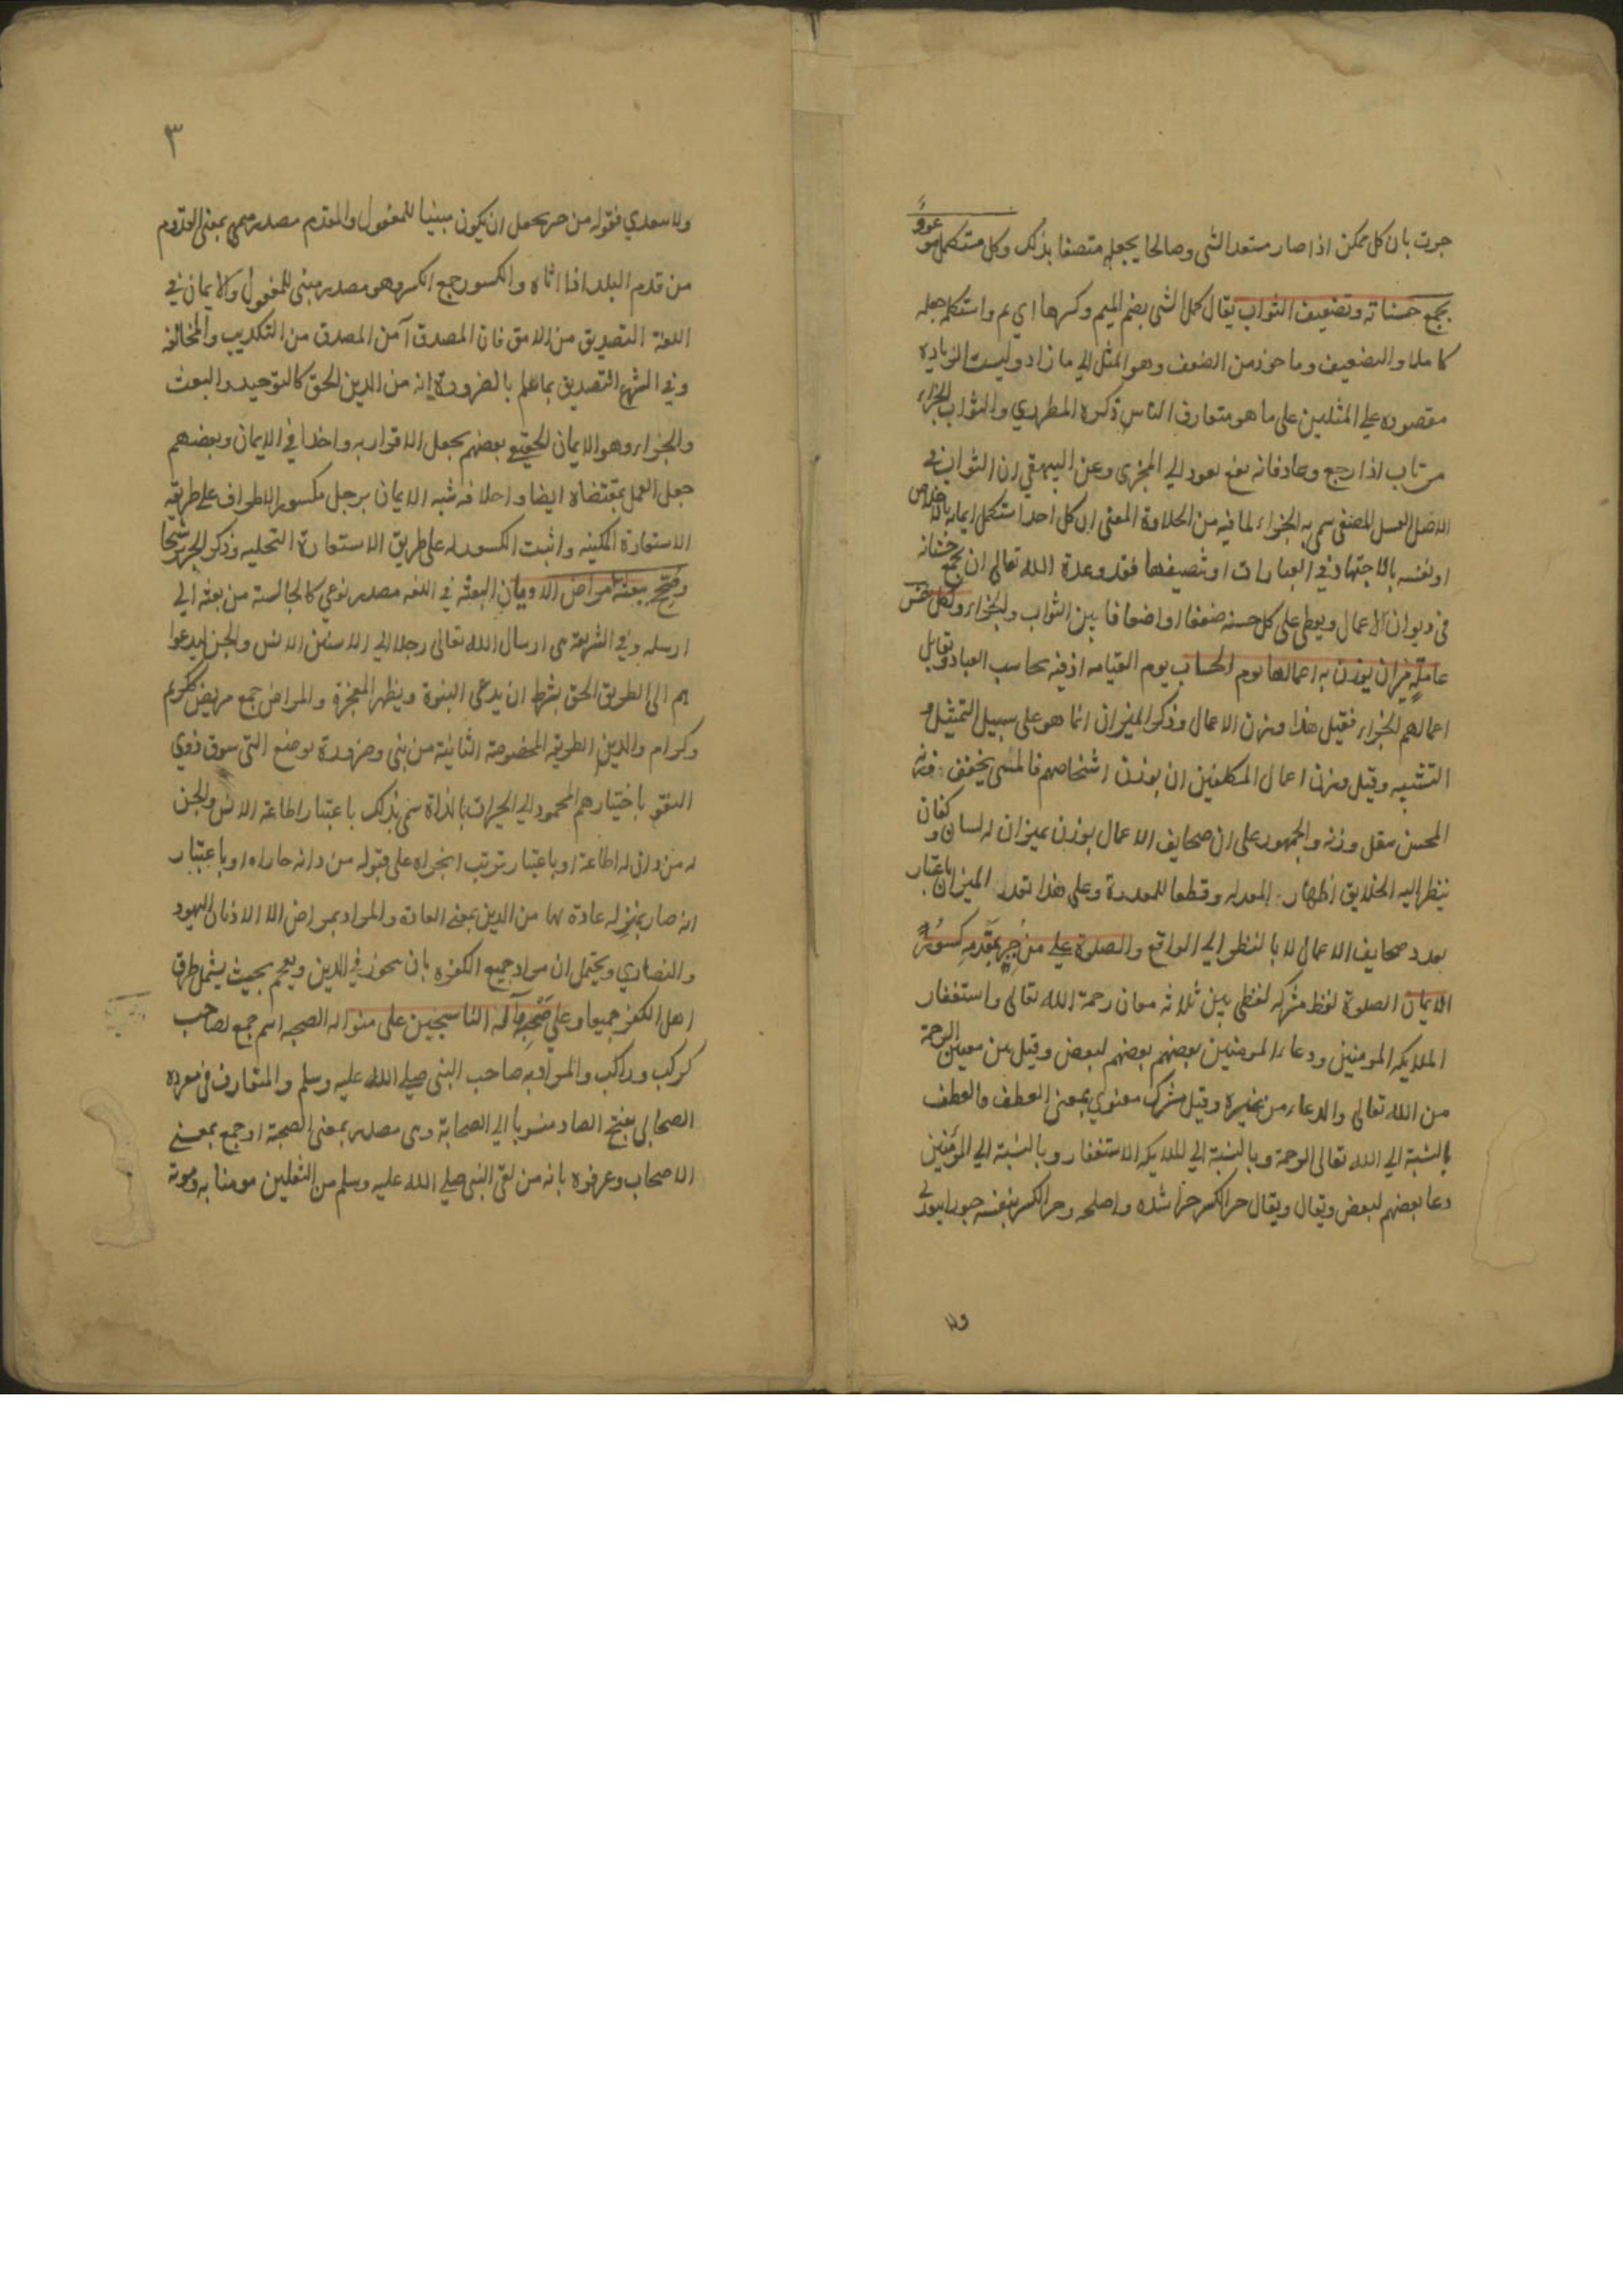 جرت بان كل ممكن اذا صار مستعدا لشى وصالحا يجعله متصفا بذلك وكل مستكمل موعود
بجمع حسناته وتضعيف الثواب يقال كمل الشى بضم الميم وكسرها اي تم واستكمله جعله
كاملا والتضعيف وماخوذ من الضعف وهو المثل الي ما زاد وليست الزيادة
مقصوده علي المثلين على ما هو متعارف الناس ذكره المطرزي والثواب الجزاء
من ثاب اذا رجع وعاد فانه نفع يعود الي المجزى وعن البيهقي ان الثواب في
الاصل العسل المصفى سمى به الجزاء لما فيه من الحلاوة المعنى ان كل احد استكمل ايمانه بالاخلاص
او نفسه بالاجتهاد في العبادات او تصيفها فقد وعده الله تعالى ان يجمع حسناته
فى ديوان الاعمال ويعطى على كل حسنة ضعفا او اضعافا بين الثواب والجزاء ولكل نفس
عاملة ميزان يوزن به اعمالها يوم الحساب يوم القيامه اذ فيه يحاسب العباد ويقابل
اعمالهم الجزاء فقيل هذا وزن الاعمال وذكر الميزان انما هو على سبيل التمثيل و
التشبيه وقيل وزن اعمال المكلفين ان يوزن اشخاصهم فالمسى يخفف وزنه
المحسن يثقل وزنه والجمهور على ان صحايف الاعمال يوزن بميزان له لسان وكفتان
ينظر اليه الخلايق اظهارا للمعدله وقطعا للمعذرة وعلى هذا تعدد الميزان باعتبار
بعدد صحايف الاعمال لا بالنظر الي الواقع والصلوة علي من جبر بمقدمه كسور
الايمان الصلوة لفظ مشركه لفظى بين ثلاثه معان رحمة الله تعالى واستغفار
الملايكه المومنين ودعاء المومنين بعضهم بعضهم لبعض وقيل بين معنيين الرحمة
من الله تعالى والدعاء من غيره وقيل مشرك معنوي بمعنى العطف والعطف
بالنسبة الي الله تعالى الرحمة وبالنسبة الي الملايكه الاستغفار وبالنسبة الي المؤمنين
دعا بعضهم لبعض ويقال ويقال جبر الكسر جبرا شده واصلحه وجبر الكسر بنفسه جبورا
٣
ولا سعدي فقوله من جبر يحمل ان يكون مبنيا للمفعول والمقدم مصدر ميمى بمعنى القدوم
من قدم البلد اذا اتاه والكسور جمع الكسر وهو مصدر مبنى للمفعول والايمان في
اللغة التصديق من الامن فان المصدق آمن المصدق من التكذيب والمخالفة
وفي الشرع التصديق بما علم بالضرورة انه من الدين الحق كالتوحيد والبعث
والجزاء وهو الايمان الحقيقي بعضهم يجعل الاقرار به واخدا في الايمان وبعضهم
جعل العمل بمقتضاه ايضا واخلا فه شبه الايمان برجل مكسور الاطراف على طريقه
الاستعارة المكنيه واثبت الكسور له على طريق الاستعارة التخليه وذكر الجبر ترشيحا
وصحح ببعثه مراض الاديان البعثه في اللغه مصدر نوعي كالجالسة من بعثه الي
ارسله وفي الشريعة هى ارسال الله تعالى رجلا الي الاسنين الانس والجن ليدعوا
هم الى الطريق الحق بشرط ان يدعى النبوة ويظهر المعجزة والمراض جمع مريض ككريم
وكرام والدين الطريقه المخصوصة الثابتة من بنى وضرورة بوضع التى سوق ذوي
العقو باختيارهم المحمود الي الخيرات بالذاة سمى بذلك باعتبار اطاعة الانس والجن
له من دان له اطاعة او باعتبار ترتب الجزاه على قبوله من دانه جازاه او باعتبار
انه صار بمنزله عادة لها من الدين بمعنى العادة والمراد بمراض الا الاديان اليهود
والنصاري ويحتمل ان مراد جميع الكفره بان يتجوز في الدين ويعمم بحيث يشمل طرق
اهل الكفر جميعا وعلي صحبه وآله الناسجين على منواله الصحبه اسم جمع لصاحب
كركب وراكب والمراد به صاحب النبى صلي الله عليه وسلم والمتعارف فى مفرده
الصحابى بفتح الصاد منسوبا الي الصحابة وهى مصدر بمعنى الصحبة او جمع بمعنى
الاصحاب وعرفوه بانه من لقى النبى صلي الله عليه وسلم من الثقلين مومنا به وموته